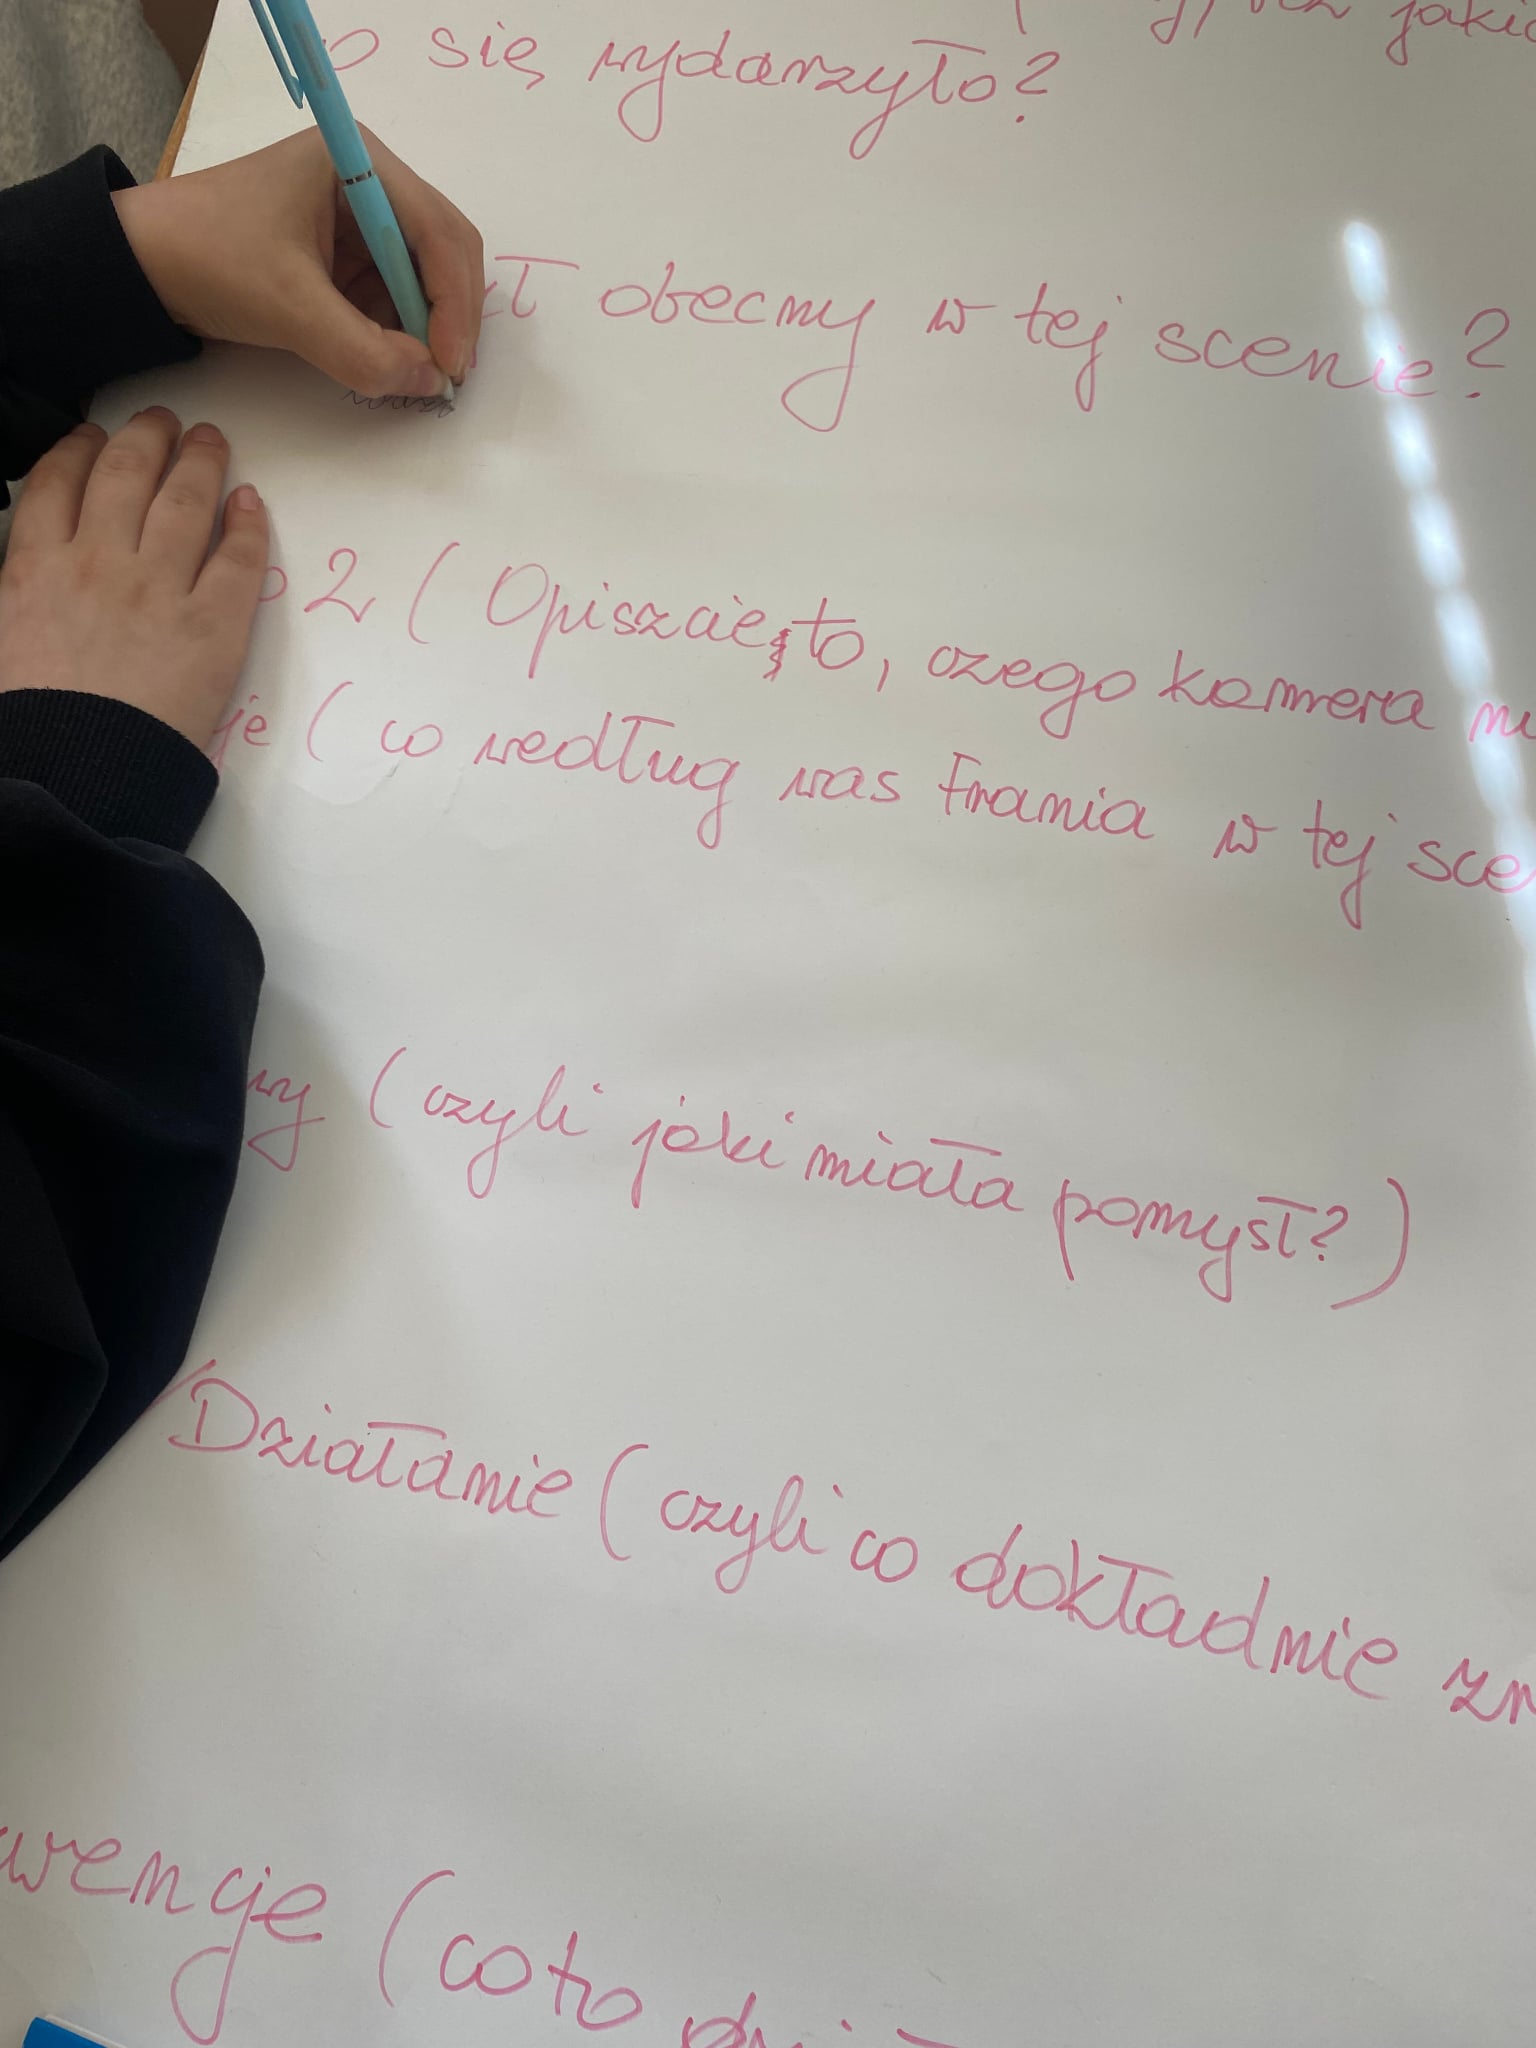 jakie
się wydarzyło?
obecny w tej scenie?
2 ( Opiszcie to, czego kamera
( co według was Frania w tej
( czyli jaki miała pomysł? )
Działanie ( czyli co dokładnie
( co to